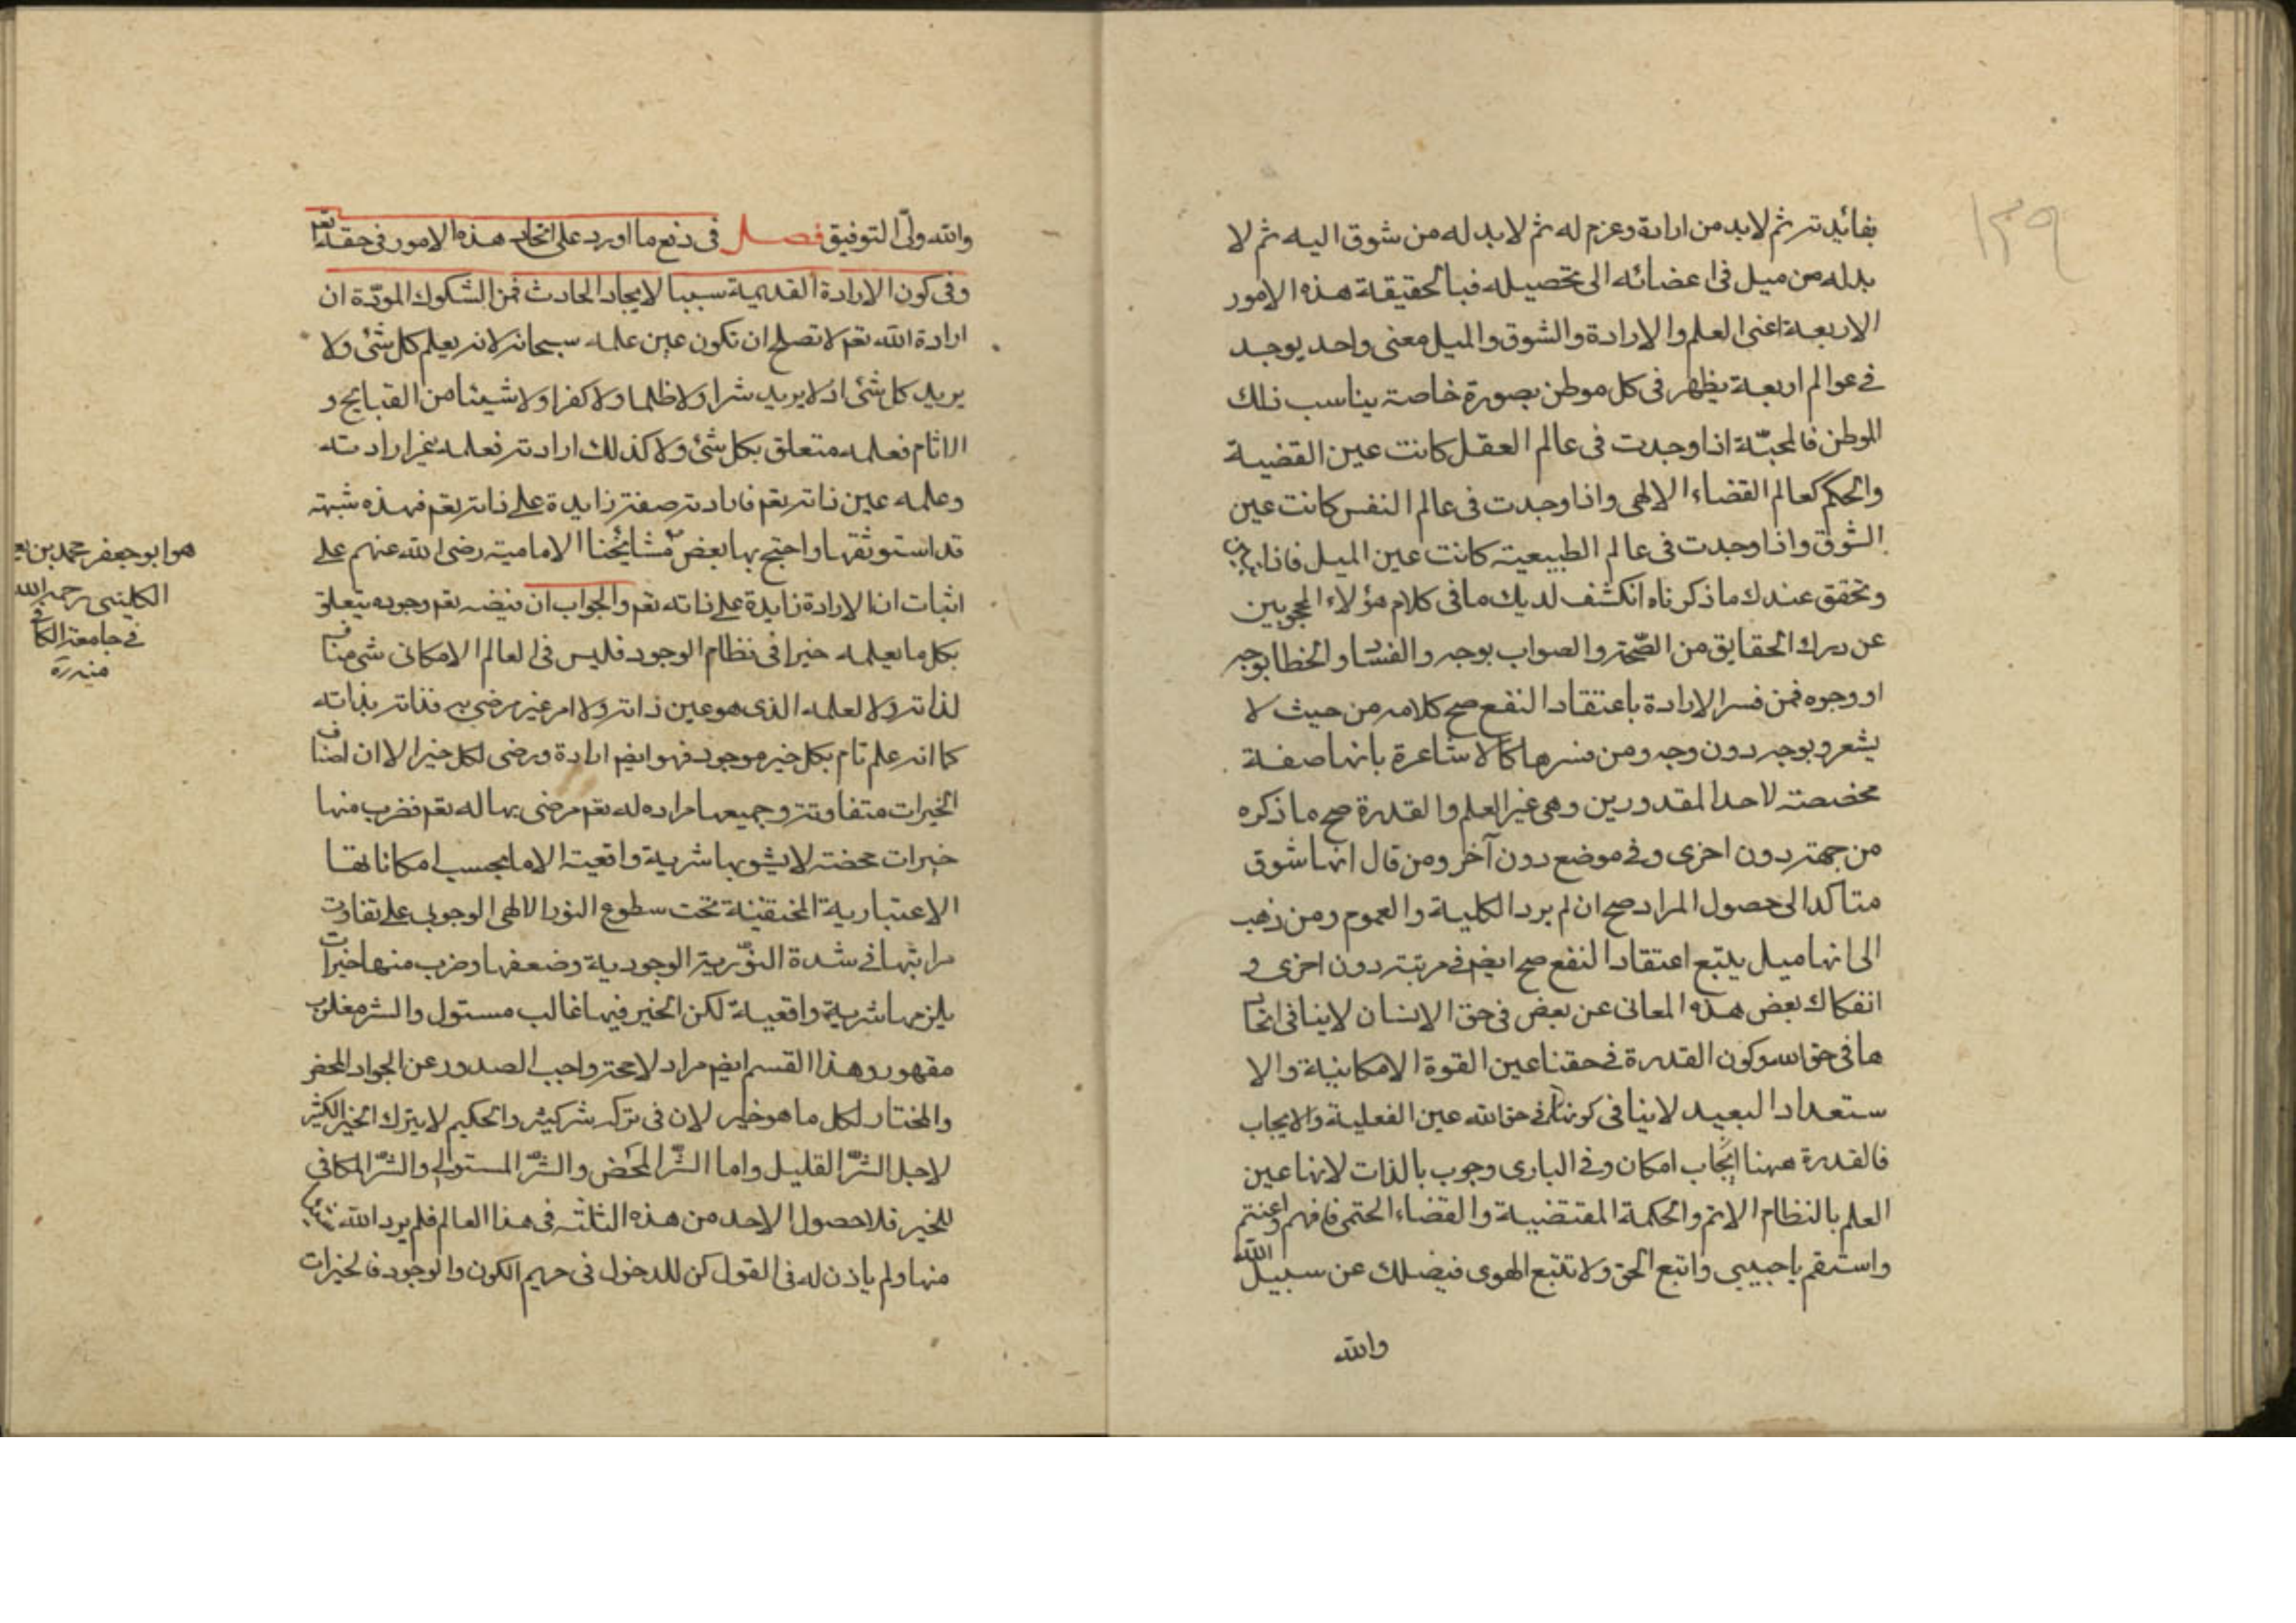 ١٣٩
بفائدته ثم لابد من ارادة وعزم له ثم لابد له من شوق اليه ثم لا
بد له من ميل فى اعضائه الى تحصيله فبالحقيقة هذه الامور
الاربعة اعنى العلم والارادة والشوق والميل معنى واحد يوجد
فى عوالم اربعة يظهر فى كل موطن بصورة خاصة يناسب ذلك
الموطن فالمحبّة اذا وجدت فى عالم العقل كانت عين القضية
والحكم كعالم القضاء الالهى واذا وجدت فى عالم النفس كانت عين
الشوق واذا وجدت فى عالم الطبيعية كانت عين الميل فاذا
وتحقق عندك ما ذكرناه انكشف لديك ما فى كلام هؤلاء المحجوبين
عن درك الحقايق من الصّحة والصواب بوجه والفساد والخطا بوجه
او وجوه فمن فسر الارادة باعتقاد النفع صح كلامه من حيث لا
يشعر وبوجه دون وجه ومن فسرها كالاشاعرة بانها صفة
مخصصة لاحد المقدورين وهى غير العلم والقدرة صح ما ذكره
من جهة دون اخرى وفى موضع دون آخر ومن قال انها شوق
متاكد الى حصول المراد صح ان لم يرد الكلية والعموم ومن ذهب
الى انها ميل يتبع اعتقاد النفع صح ايضا فى مرتبة دون اخرى و
انفكاك بعض هذه المعانى عن بعض فى حق الانسان لاينافى اتحاد
ها فى حق الله وكون القدرة فى حقنا عين القوة الامكانية والا
ستعداد البعيد لاينافى كونها فى حق الله عين الفعلية والايجاب
فالقدرة ههنا ايجاب امكان وفى البارى وجوب بالذات لانها عين
العلم بالنظام الاتم والحكمة المقتضية والقضاء الحتمى فافهم واغتنم
واستقم يا حبيبى واتبع الحق ولا تتبع الهوى فيضلك عن سبيل الله
والله
والله ولىّ التوفيق فصل فى دفع ما اورد على اتحاد هذه الامور فى حقه تعم
وفى كون الارادة القديمة سببا لايجاد الحادث فمن الشكوك الموردة ان
ارادة الله تعم لا تصلح ان تكون عين علمه سبحانه لانه يعلم كل شئ ولا
يريد كل شئ اذ لا يريد شرا ولا ظلما ولا كفرا ولا شيئا من القبايح و
الاثام فعلمه متعلق بكل شئ ولا كذلك ارادته فعلمه غير ارادته
وعلمه عين ذاته تعم فارادته صفة زايدة على ذاته تعم فهذه شبهة
قد استوثقها واحتج بها بعض مشائخنا الامامية رضى الله عنهم على
اثبات ان الارادة زايدة على ذاته تعم والجواب ان فيضه تعم وجوده يتعلق
بكل ما يعلمه خيرا فى نظام الوجود فليس فى العالم الامكانى شى مناف
لذاته ولا لعلمه الذى هو عين ذاته ولا امر غير مرضى به فذاته بذاته
كما انه علم تام بكل خير موجود فهو ايضا ارادة ورضى لكل خير الا ان اصناف
الخيرات متفاوتة وجميعها مراده له تعم مرضى بها له تعم فضرب منها
خيرات محضة لا يشوبها شرية واقعية الا ما بحسب امكاناتها
الاعتبارية المختفية تحت سطوع النور الالهى الوجوبى على تفاوت
مراتبها فى شدة النوّرية الوجودية وضعفها وضرب منها خيرات
يلزمها شرية واقعية لكن الخير فيها غالب مستول والشر مغلوب
مقهور وهذا القسم ايضا مراد لا محة واجب الصدور عن الجواد المحض
والمختار لكل ما هو خير لان فى تركه شر كثير والحكيم لا يترك الخير الكثير
لاجل الشّر القليل واما الشّر المحض والشّر المستولى والشّر المكافى
للخير فلا حصول لاحد من هذه الثلثة فى هذا العالم فلم يرد الله شيئا
منها ولم ياذن له فى القول كن للدخول فى حريم الكون والوجود فالخيرات
هو ابو جعفر محمد بن
الكلينى رحمه الله
فى جامعة الكافى
منه ره